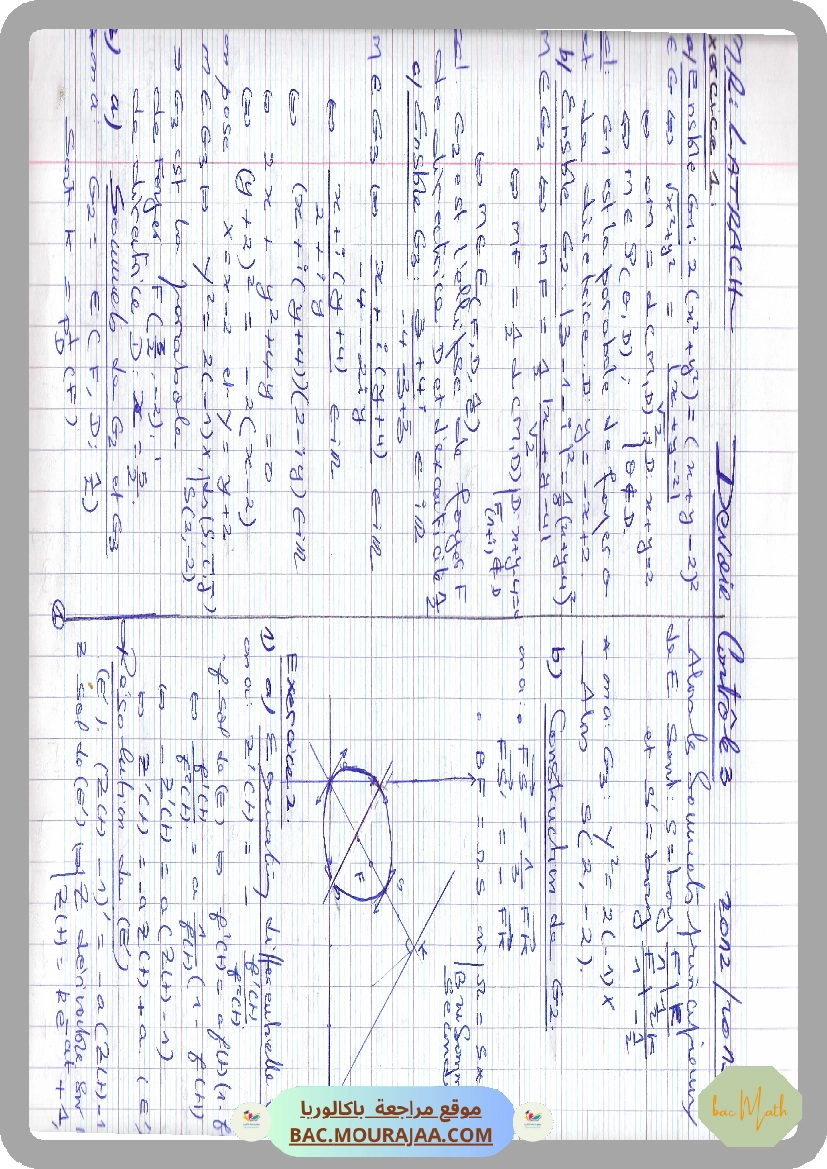 MR: LATRACH Devoir Contrôle 3 2012/201
Exercice 1.
a) Ensble G1: 2(x²+y²) = (x+y-2)²
M ∈ G1 ⇔ √x²+y² = |x+y-2| / √2
⇔ OM = d(M,D); D: x+y=2
⇔ M ∈ P(O,D); O ∉ D.
G1 est la parabole de foyer O
et de directrice D: y = -x+2.
b) Ensble G2: |z-1-i|² = 1/8 (x+y-4)²
M ∈ G2 ⇔ MF = 1/2 |x+y-4| / √2
⇔ MF = 1/2 d(M,D) | D: x+y-4=0
F(1,1) ∉ D
⇔ M ∈ E(F,D,1/2)
G2 est l'ellipse de foyer F
de directrice D et d'excentricité 1/2
c) Ensble G3:
M ∈ G3 ⇔ x+i(y+4) ∈ iℝ
⇔ x+i(y+4) / 2+iy ∈ iℝ
⇔ (x+i(y+4))(2-iy) ∈ iℝ
⇔ 2x + y²+4y = 0
⇔ (y+2)² = -2(x-2)
on pose X = x-2 et Y = y+2
M ∈ G3 ⇔ Y² = 2(-1)X
S(2,-2)
G3 est la parabole
de foyer F(3/2, -2)
de directrice D: x = 5/2.
a) Sommets de G2 et G3
on a: G2 = E(F, D; 1/2)
Soit K = P⊥D (F)
①
Alors les Sommets principaux
de E sont: S = bary
et S' = bary
* on a: G3: Y² = 2(-1)X
Alors S(2,-2).
b) Construction de G2.
on a: • FS = 1/3 FK
FS' = - FK
• BF = ΩS où Ω = S*
B un Sommet
Second
F
K
Exercice 2.
1) a) Equation différentielle
on a: z(t) = 1/f(t)
z'(t) = - f'(t)/f²(t)
f sol de (E) ⇔ f'(t) = a f(t)(1-f
⇔ f'(t)/f²(t) = a 1/f(t) (1-f(t))
⇔ -z'(t) = a(z(t)-1)
⇔ z'(t) = -a z(t) + a. (E')
Résolution de (E')
(E'): (z(t)-1)' = -a(z(t)-1
z sol de (E') ⇔ z dérivable sur
z(t) = k e^-at + 1,
bac Math
موقع مراجعة باكالوريا
BAC.MOURAJAA.COM